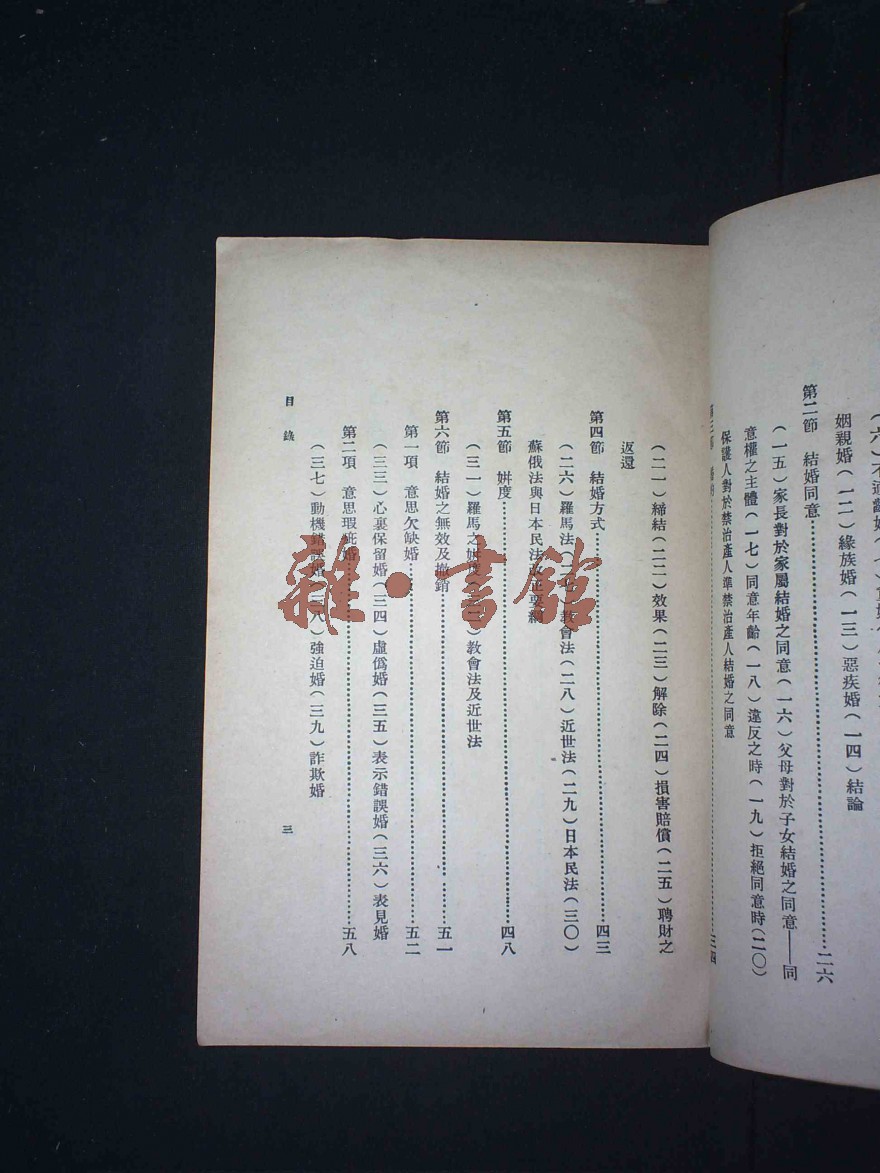 姻親婚(一二)緣族婚(一三)惡疾婚(一四)結論
第二節 結婚同意……二六
(一五)家長對於家屬結婚之同意(一六)父母對於子女結婚之同意——同
意權之主體(一七)同意年齡(一八)違反之時(一九)拒絕同意時(二〇)
保護人對於禁治產人準禁治產人結婚之同意
三四
(二一)締結(二二)效果(二三)解除(二四)損害賠償(二五)聘財之
返還
第四節 結婚方式……四三
(二六)羅馬法(二七)教會法(二八)近世法(二九)日本民法(三〇)
蘇俄法與日本民法改正要綱
第五節 姘度……四八
(三一)羅馬之姘度(三二)教會法及近世法
第六節 結婚之無效及撤銷……五一
第一項 意思欠缺婚……五二
(三三)心裏保留婚(三四)虛僞婚(三五)表示錯誤婚(三六)表見婚
第二項 意思瑕疵婚……五八
(三七)動機錯誤婚(三八)強迫婚(三九)詐欺婚
目錄
三
雜·書館